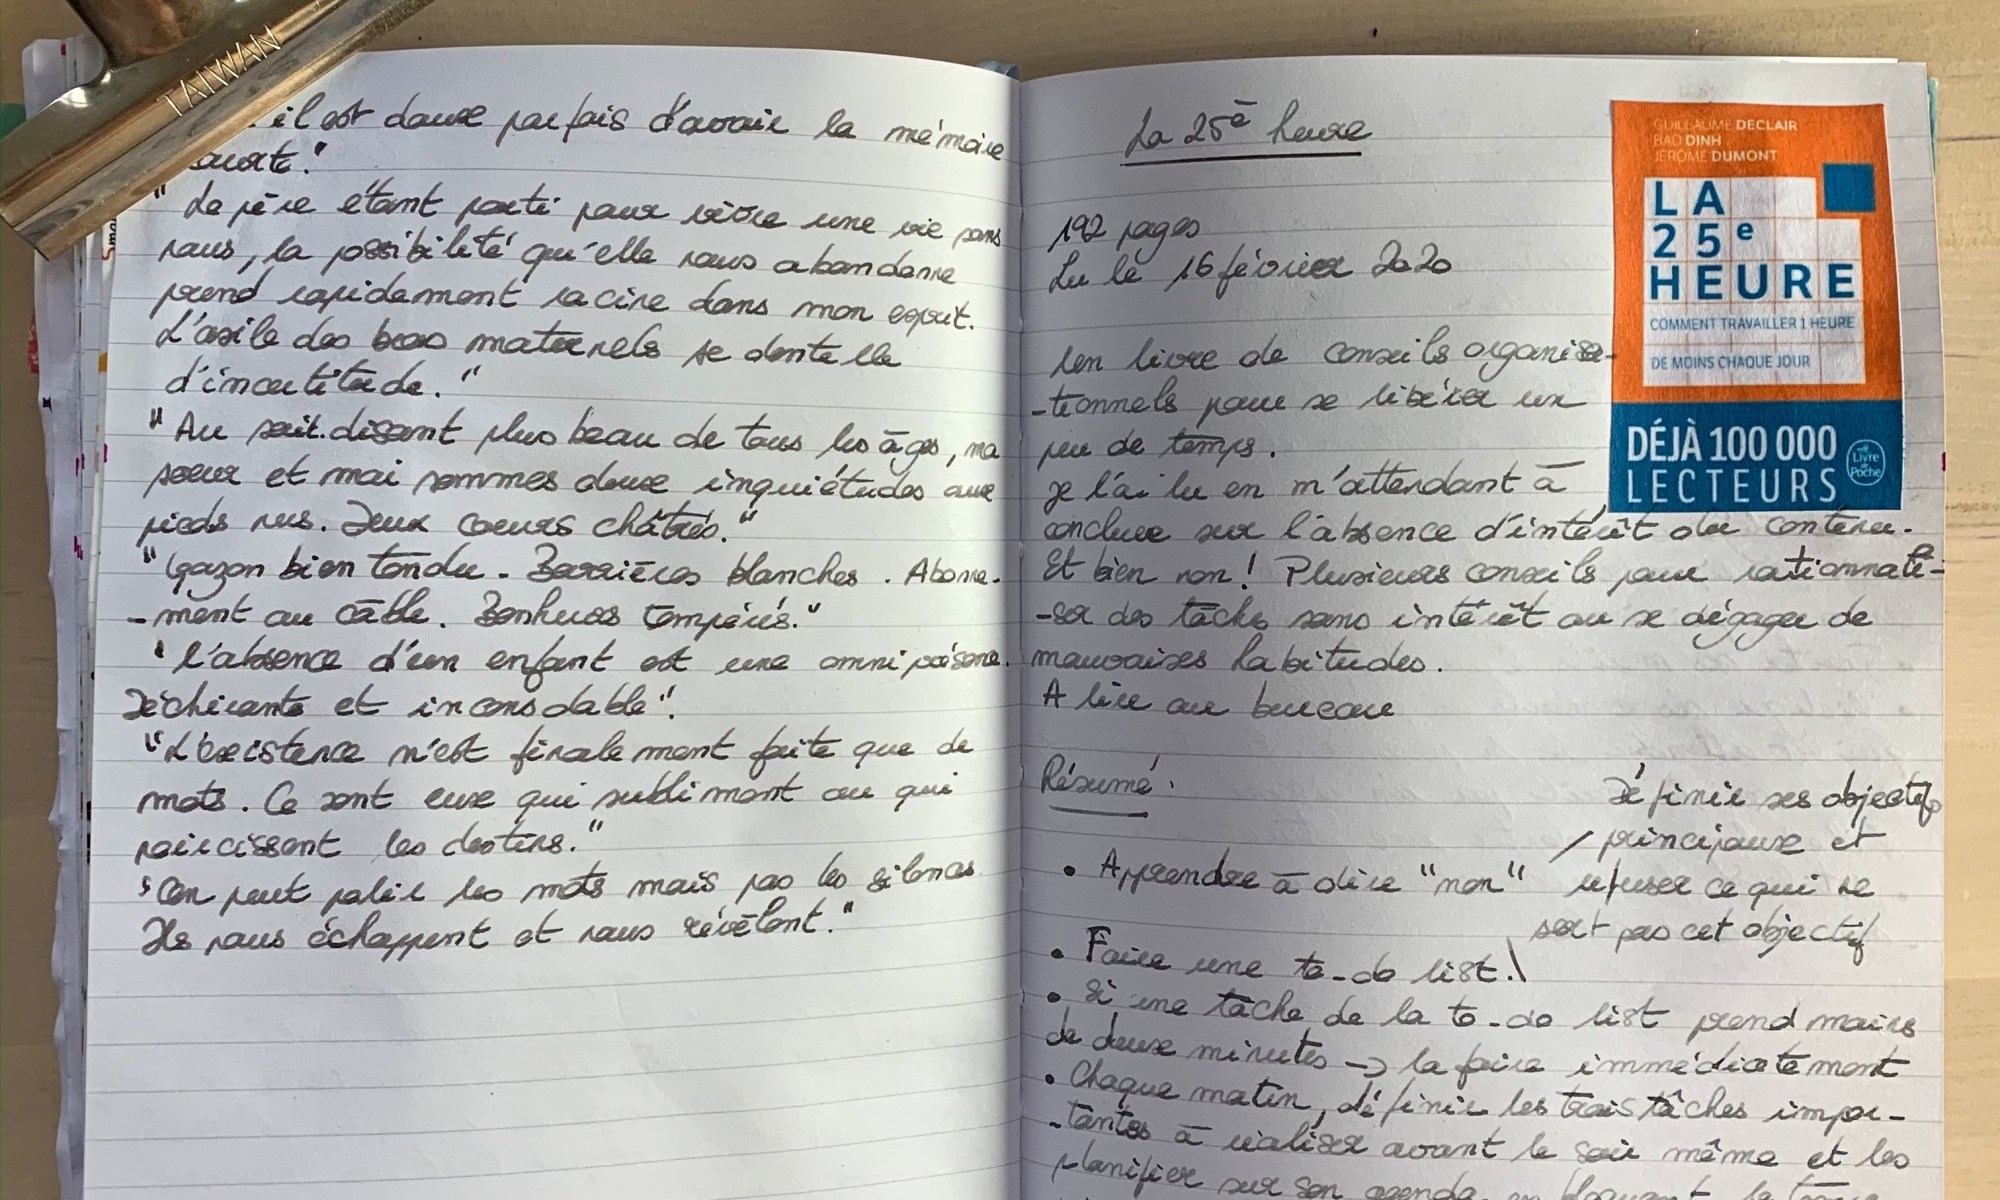 TAIWAN
il est doux parfois d'avoir la mémoire
courte."
" Le père étant parti pour vivre une vie sans
nous, la possibilité qu'elle nous abandonne
prend rapidement racine dans mon esprit.
L'asile des bras maternels se dentelle
d'incertitude."
"Au soit-disant plus beau de tous les âges, ma
soeur et moi sommes deux inquiétudes aux
pieds nus. Deux coeurs châtrés."
"Gazon bien tondu. Barrières blanches. Abonne-
-ment au câble. Bonheurs tempérés."
"l'absence d'un enfant est une omniprésence.
Déchirante et inconsolable".
"L'existence n'est finalement faite que de
mots. Ce sont eux qui subliment ou qui
noircissent les destins."
"On peut polir les mots mais pas les silences
Ils nous échappent et nous révèlent."
La 25è heure
192 pages
Lu le 16 février 2020
Un livre de conseils organisa-
-tionnels pour se libérer un
peu de temps.
Je l'ai lu en m'attendant à
conclure sur l'absence d'intérêt du contenu.
Et bien non! Plusieurs conseils pour rationnali-
-ser des tâches sans intérêt ou se dégager de
mauvaises habitudes.
A lire au bureau
Résumé.
• Apprendre à dire "non"
/ Définir ses objectifs
principaux et
refuser ce qui ne
sert pas cet objectif
• Faire une to-do list.\
• Si une tâche de la to-do list prend moins
de deux minutes → la faire immédiatement
• Chaque matin, définir les trois tâches impor-
-tantes à réaliser avant le soir même et les
planifier sur son agenda en bloquant le temps
GUILLAUME DECLAIR
BAO DINH
JÉRÔME DUMONT
LA
25e
HEURE
COMMENT TRAVAILLER 1 HEURE
DE MOINS CHAQUE JOUR
DÉJÀ 100 000
LECTEURS
Le Livre de Poche